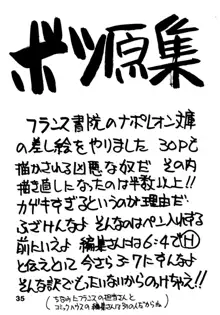 ボツ原集
フランス書院のナポレオン文庫
の差し絵をやりました 30Pと
描かされる凶悪な奴だ その内
描き直しになったのは半数以上!!
カゲキすぎるというのが理由だ
ふざけんなよ そんなのはペン入れする
前にいえよ 編集さんは6:4でⒽ
と伝えとに 今さら3:7にすんなよ
そんな訳でもったいないからのっけちゃえ!!
35
(ちなみにフランスの担当さんと
コミックハウスの編集さんは別の人だからね)